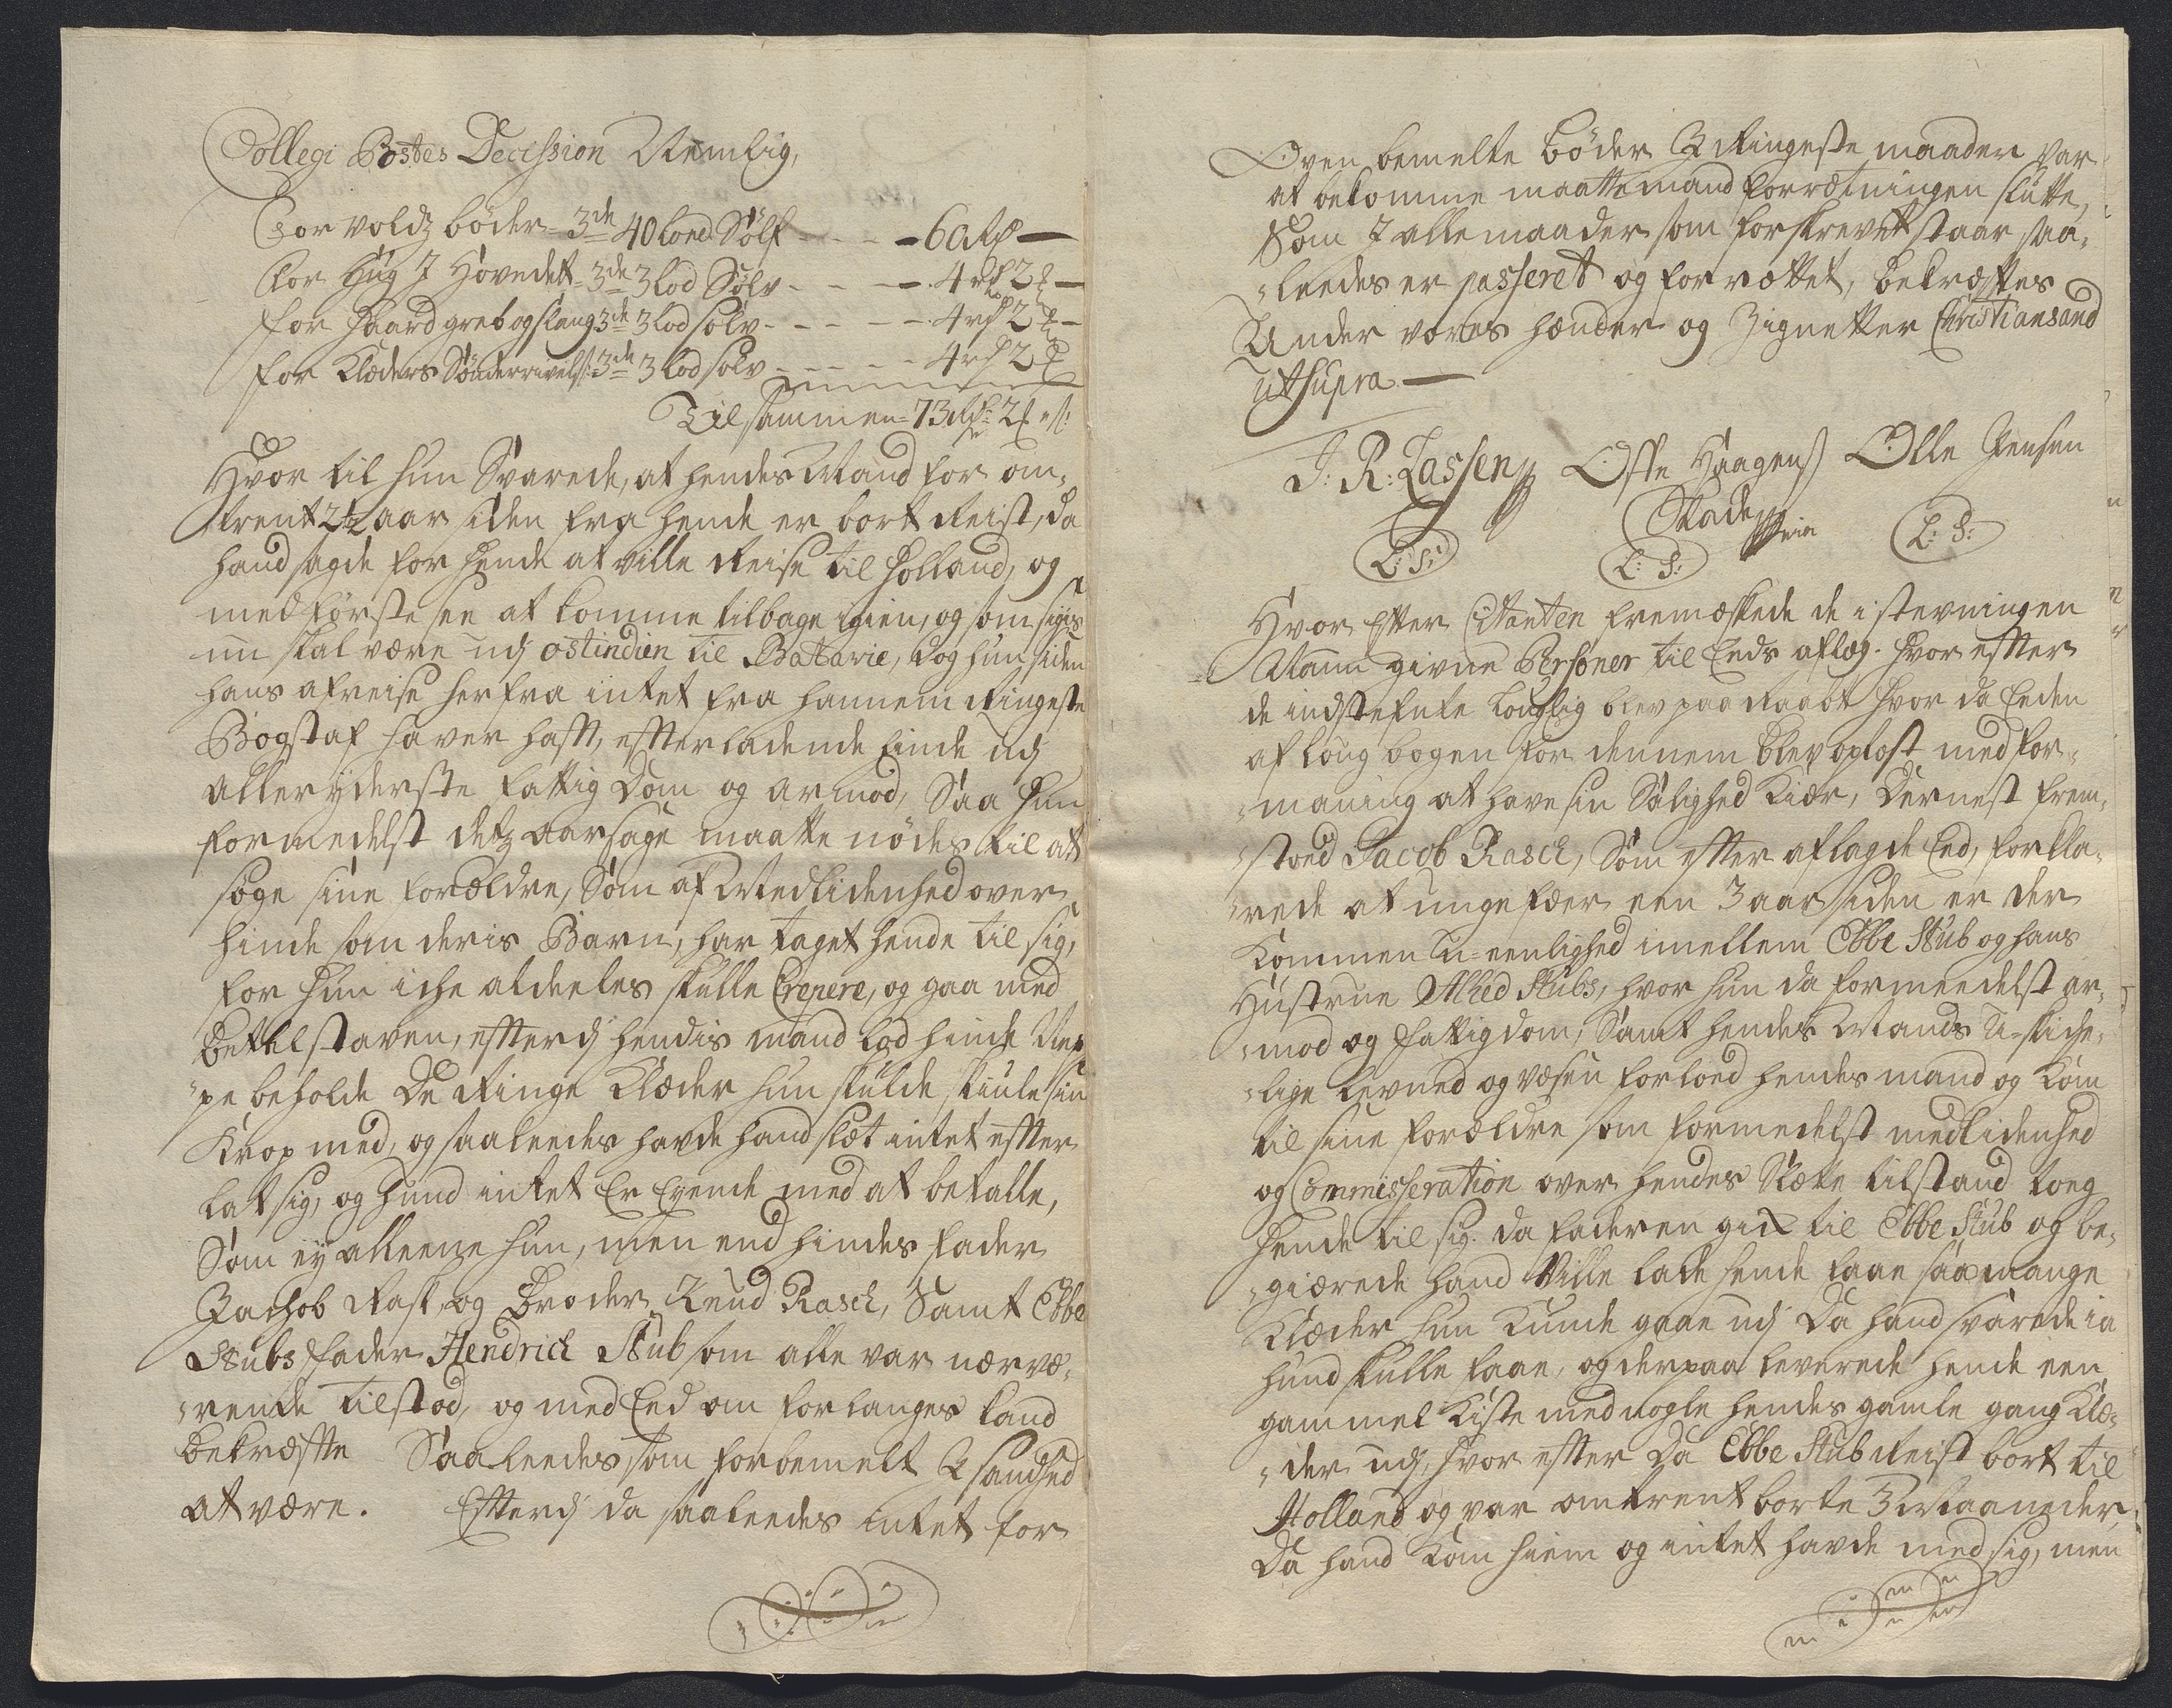 Collegi Postes Decission Nemlig,
For voldz bøder 3de 40 Lond Sølf - - - 60 Rdr —
For Hug I Hovedet 3de 3 Lod Sølv - - - 4 rdr 2 —
for Haardgreb og slaug 3de 3 lod sølv - - - 4 rdr 2 —
for Klæders Sønderrivelse 3de 3 lod sølv - - - 4 rdr 2
Tilsammen = 73 Rdr 2
Hvor til hun Svarede, at hendes Mand for om¬
trent 2½ aar siden fra hende er bort Reist, da
hand sagde for hende at ville Reise til Holland, og
med første see at komme tilbage igien, og som siges
nu skal være udj ostindien til Batavie, dog hun siden
hans afreise herfra intet fra hannem Ringeste
Bogstaf haver hafft, effterladende hinde udj
aller yderste fattigdom og armod, Saa hun
formedelst detz aarsage maatte nødes til at
søge sine forældre, Som af Medlidenhed over
hinde som deris Barn, har taget hende til sig,
for hun iche aldeeles skulle Crepere, og gaa med
Bettelstaven, effterdj hendis mand lod hinde Nep¬
pe beholde De Ringe Klæder hun skulde skiule sin
Krop med, og saaleedes havde hand slet intet effter
lat sig, og hund intet Er Eyende med at betalle,
Som ey alleene hun, men end hindes fader
Jachob Rask, og Broder Knud Rasch, Samt Ebbe
Stubs fader Hendrich Stub som alle var nærvæ¬
rende tilstod, og med Eed om forlanges kand
bekræffte Saaleedes som forbemelt I sandhed
at være. Effterdj da saaleedes intet for
Oven bemelte bøder I Ringeste maader var
at bekomme maatte mand forrætningen slutte,
Som I alle maader som forskrevet staar saa¬
leedes er passeret og forrættet, bekræfftes
Under vores hænder og Zignetter Christiansand
ut supra. —
J: R: Lassen Offe Haagens Olle Jensen
Skade
L: S: L: S: L: S:
Hvor Effter Citanten fremæskede de i stevningen
Navn givne Persoher til Eeds aflæg. Hvor effter
de indstefnte louglig blev paa Raabt hvor da Eeden
af Loug bogen for dennem blev oplæst med for¬
maning at have sin Salighed Kiær, Dernest frem¬
stoed Jacob Rasch, Som effter aflagde Eed, forkla¬
rede at ungefær een 3 aar siden er der
Kommen U-eenlighed imellem Ebbe Stub og hans
Hustrue Alhed Stubs, hvor hun da formeedelst ar¬
mod og Fattigdom, Samt hendes Mands U-skiche¬
lige Levned og væsen forloed hendes mand og kom
til sine forældre som formedelst medlidenhed
og Commisseration over hendes Slette tilstand toeg
hende til sig. da faderen gik til Ebbe Stub og be¬
giærede hand Ville lade hende faae saa mange
Klæder hun kunde gaae udj Da hand svarede ia
hund skulle faae, og derpaa leverede hende een
gammel Kiste med nogle hendes gamle gang Klæ¬
der udj, hvor effter Da Ebbe Stub Reist bort til
Holland og var omtrent borte 3 Maaneder,
Da hand kom hiem og intet havde med sig, men